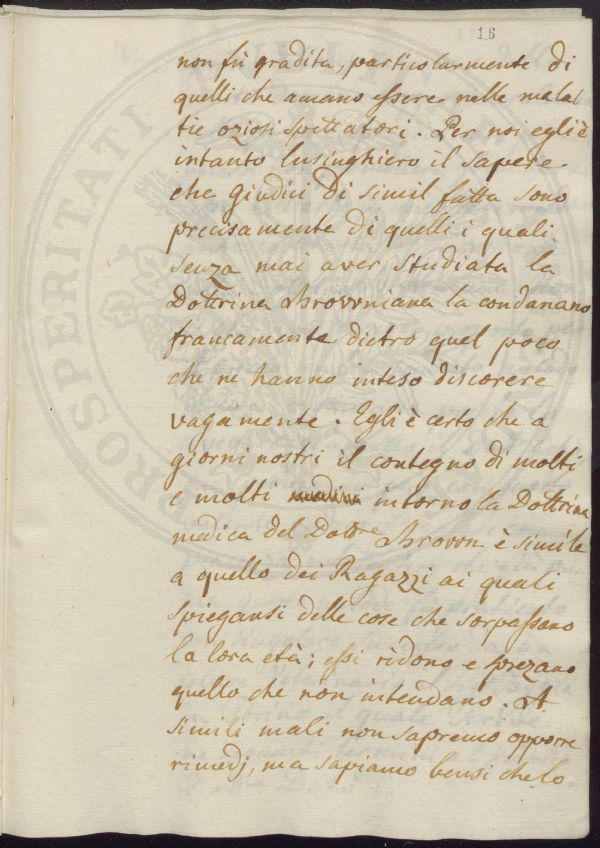 16
non fù gradita, particolarmente di
quelli che amano essere nelle malat
tie oziosi spettatori. Per noi egli è
intanto lusinghiero il sapere
che giudici di simil fatta sono
precisamente di quelli i quali
senza mai aver studiata la
Dottrina Brovvniana la condanano
francamente dietro quel poco
che ne hanno inteso discorere
vagamente. Egli è certo che a
giorni nostri il contegno di molti
e molti medici intorno la Dottrina
medica del Dottre Brovvn è simile
a quello dei Ragazzi ai quali
spiegansi delle cose che sorpassano
la lora età; essi ridono e sprezano
quello che non intendano. A
simili mali non sapremo opporre
rimedj, ma sapiamo bensi che lo
PROSPERITATI